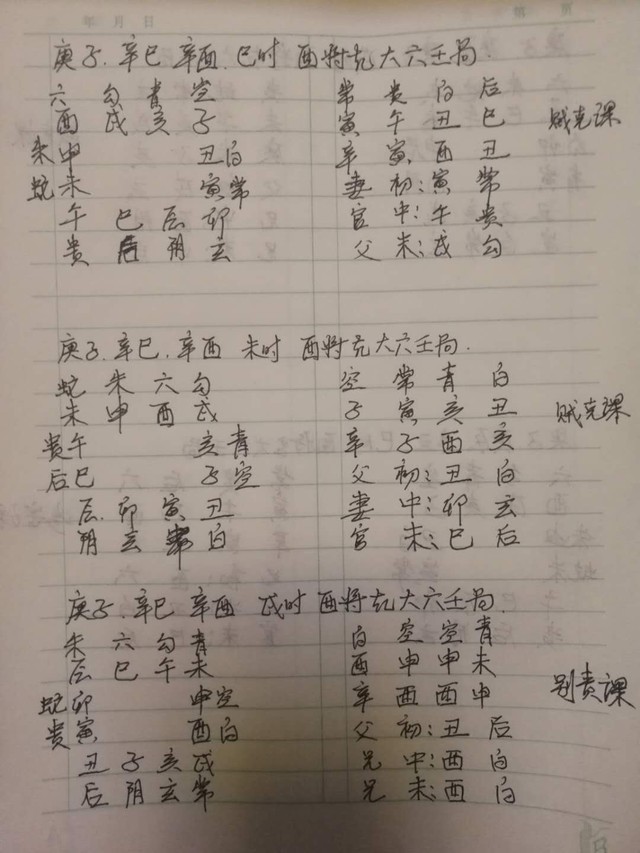 年 月 日 第 页
庚子.辛巳 辛酉.巳时 酉将克大六壬局.
六 勾 青 空 常 贵 白 后
酉 戌 亥 子 寅 午 丑 巳 贼克课
朱申 丑白 辛 寅 酉 丑
蛇未 寅常 妻 初:寅 常
午 巳 辰 卯 官 中:午 贵
贵 后 阴 玄 父 末:戌 勾
庚子.辛巳.辛酉 未时 酉将克大六壬局.
蛇 朱 六 勾 空 常 青 白
未 申 酉 戌 子 寅 亥 丑 贼克课
贵午 亥青 辛 子 酉 亥
后巳 子空 父 初:丑 白
辰 卯 寅 丑 妻 中:卯 玄
阴 玄 常 白 官 末:巳 后
庚子.辛巳 辛酉 戌时 酉将克大六壬局.
朱 六 勾 青 白 空 空 青
辰 巳 午 未 酉 申 申 未
蛇卯 申空 辛 酉 酉 申 别责课
贵寅 酉白 父 初:丑 后
丑 子 亥 戌 兄 中:酉 白
后 阴 玄 常 兄 末:酉 白